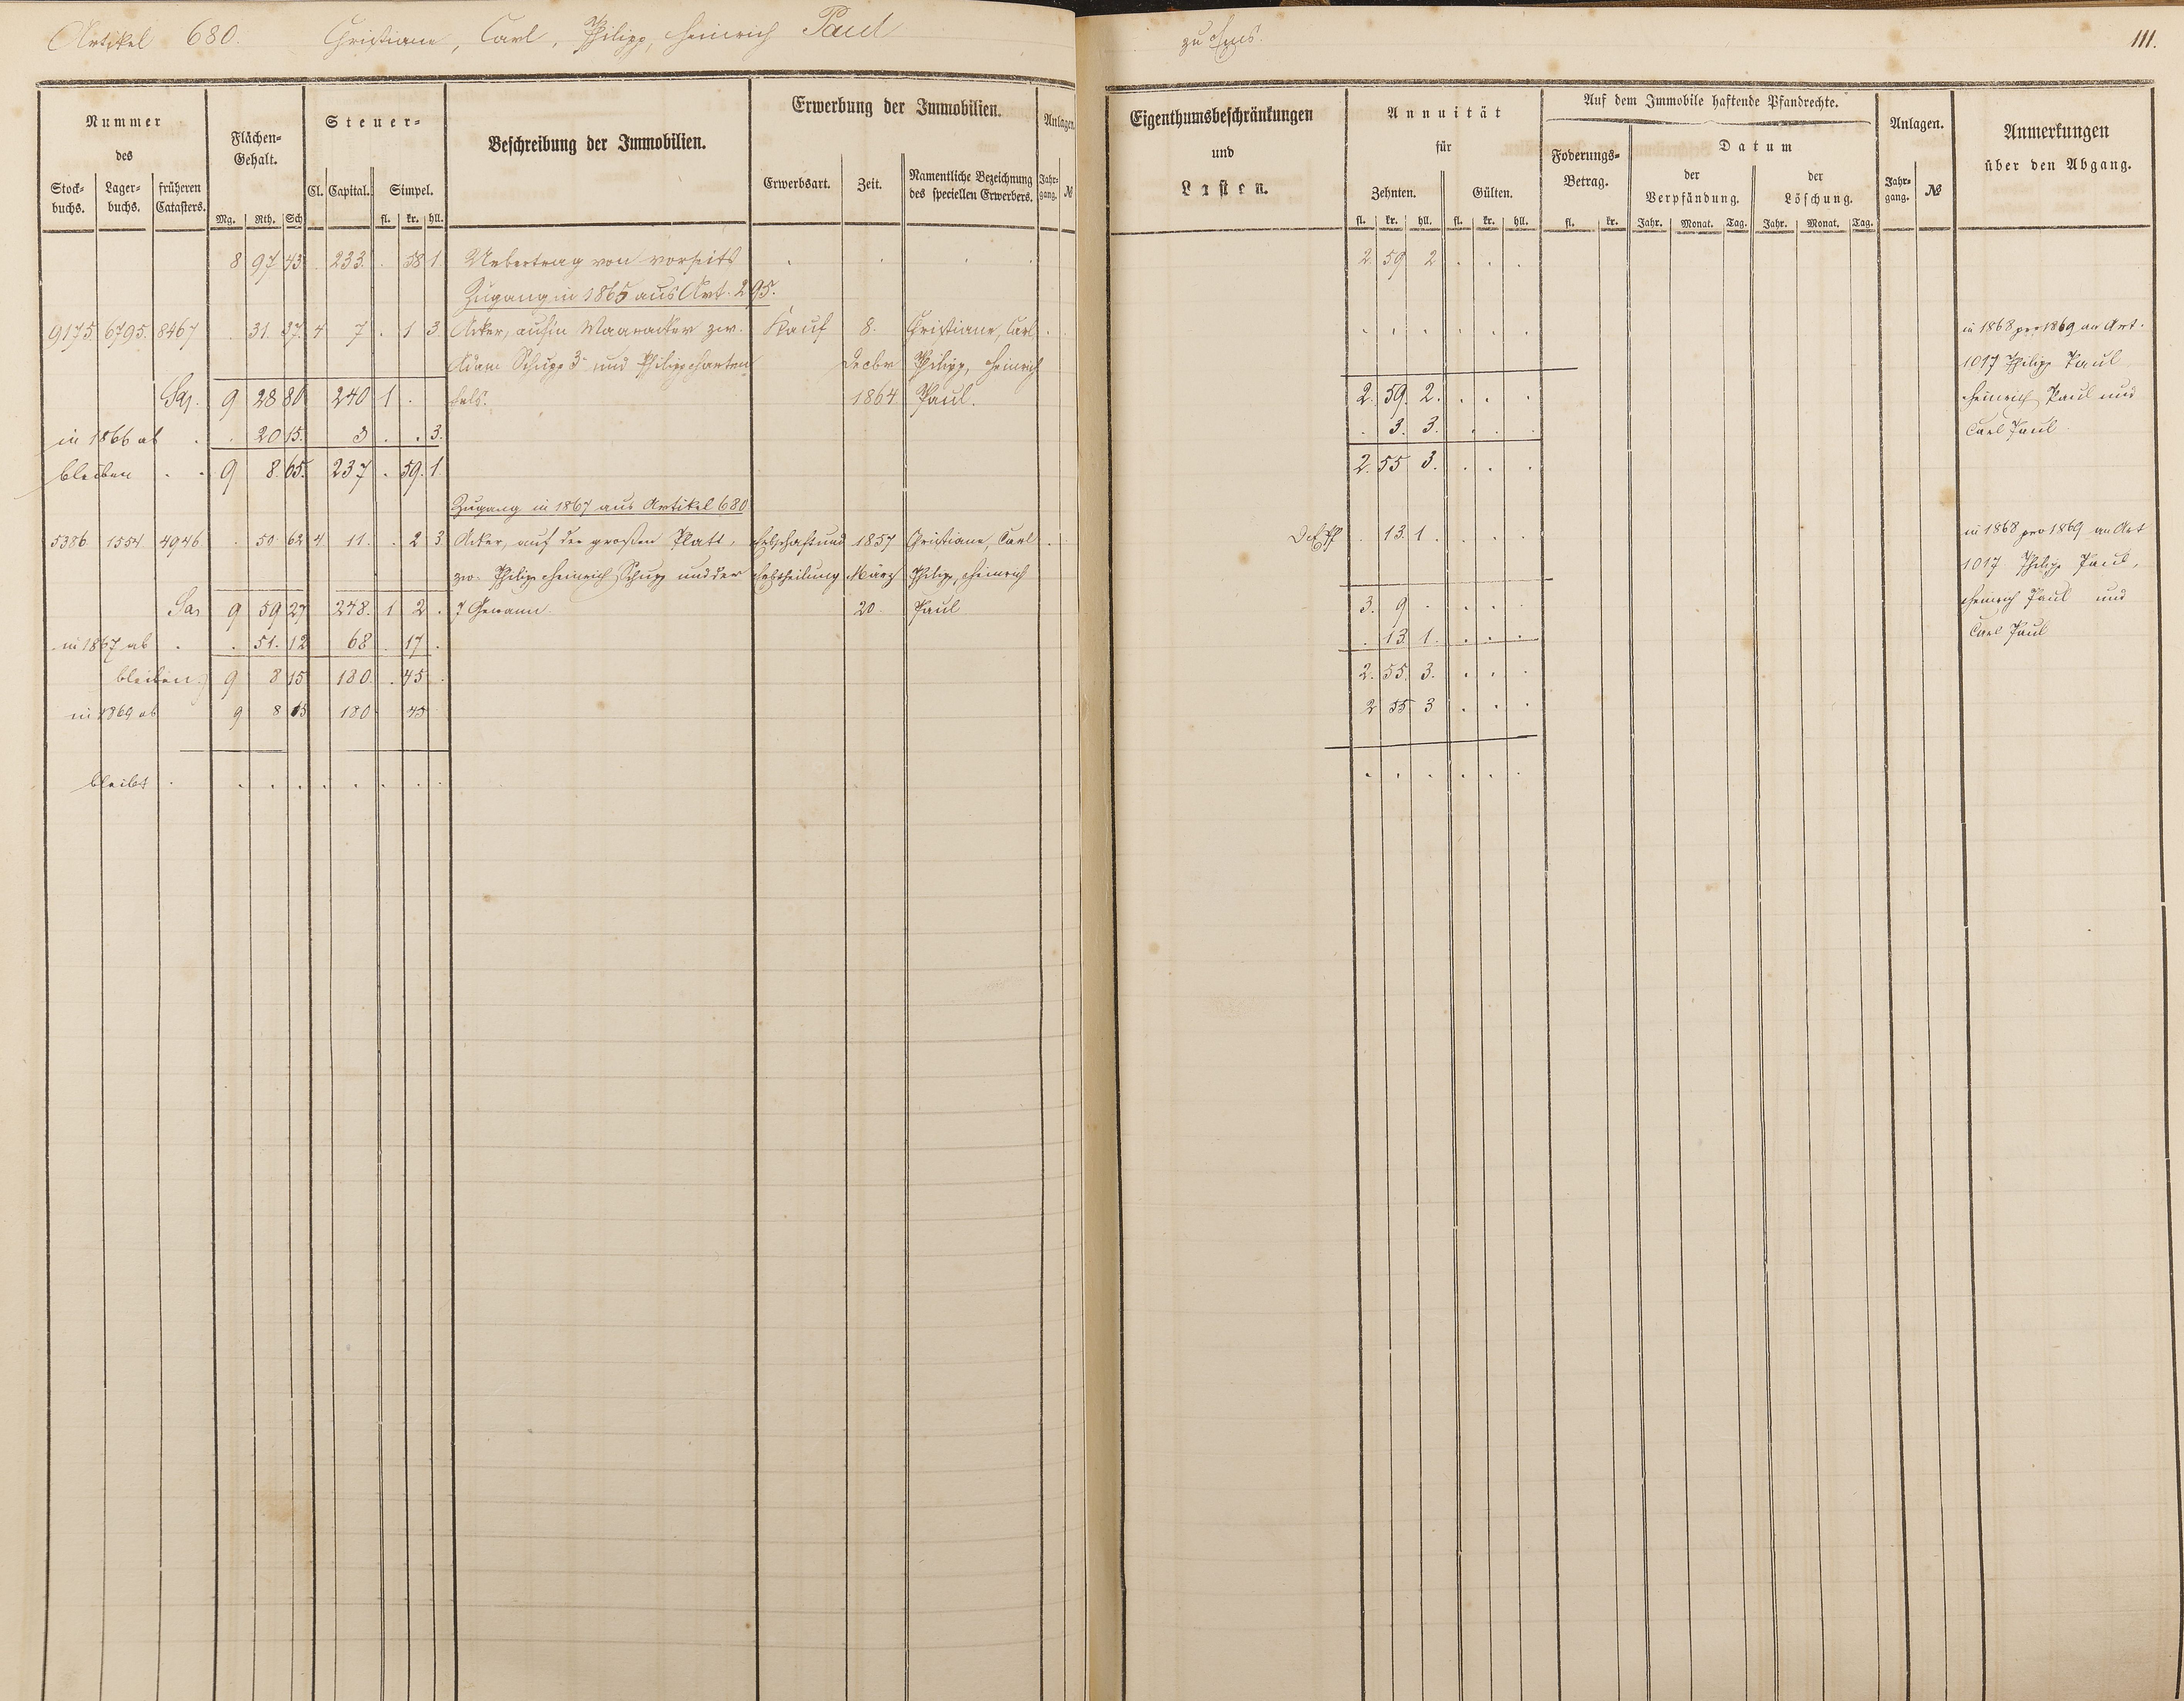 Artikel 680. Christiane, Carl, Philipp, Heinrich Paul
zu
111.
Nummer
des
Stock-
buchs.
Lager-
buchs.
früheren
Catasters.
Flächen-
Gehalt.
Mg. Rth. Sch
Steuer-
Cl. Capital. Simpel.
fl. kr. hll.
Beschreibung der Immobilien.
Erwerbung der Immobilien.
Erwerbsart. Zeit.
Namentliche Bezeichnung
des speciellen Erwerbers.
Anlagen.
Jahr-
gang. №
Eigenthumsbeschränkungen
und
Lasten.
Annuität
für
Zehnten. Gülten.
fl. kr. hll. fl. kr. hll.
Auf dem Immobile haftende Pfandrechte.
Foderungs-
Betrag.
fl. kr.
Datum
der
Verpfändung.
Jahr. Monat. Tag.
der
Löschung.
Jahr. Monat. Tag.
Anlagen.
Jahr-
gang. №
Anmerkungen
über den Abgang.
8 97 43 . 233. . 58 1. Uebertrag von vorseits . . . . 2. 59 2 . . .
Zugang in 1865 aus Art. 295.
9175 6795. 8467 . 31. 37. 4 7 . 1 3. Acker, auf'm zw. Kauf 8. Christiane, Carl . . . . . . . in 1868 pro 1869 an Art.
Adam Schupp 3r und Philipp Harten Decbr Philipp, Heinrich 1017 Philipp Paul
Sa. 9 28 80 240 1 . fels. 1864 Paul. 2. 59. 2. . . . Heinrich Paul und
in 1866 ab . . 20 15. 3 . . 3. . 3. 3. . . . Carl Paul
bleiben . . 9 8. 65. 237 . 59. 1. 2. 55 3. . . .
Zugang in 1867 aus Artikel 680
5386 1554 4946 . 50 62 4 11. . 2 3 Acker, auf der großen Platt, Erbschaft und 1857 Christiane, Carl . . 13. 1. . . . in 1868 pro 1869 an Art
zw. Philipp Heinrich Schupp und der Abtheilung März Philipp, Heinrich 1017 Philipp Paul,
Sa 9 59 27 248. 1 2 . 7 Gewann. 20 Paul 3. 9 . . . . Heinrich Paul und
in 1867 ab . . 51. 12 68 . 17 . . 13. 1. . . . Carl Paul
bleiben 9 8 15 180. . 45 . 2. 55. 3. . . .
in 1869 ab 9 8 15 180 45 2 55 3 . . .
bleibt . . . . . . . . . . . . . . .